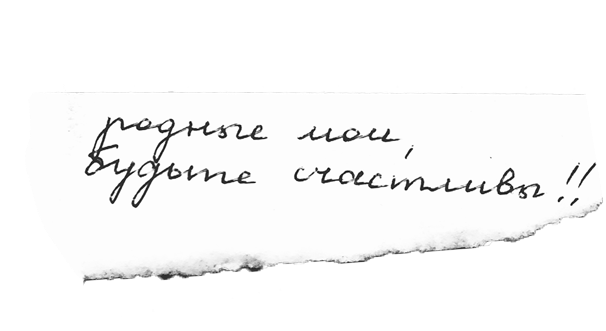 родные мои,
будьте счастливы!!